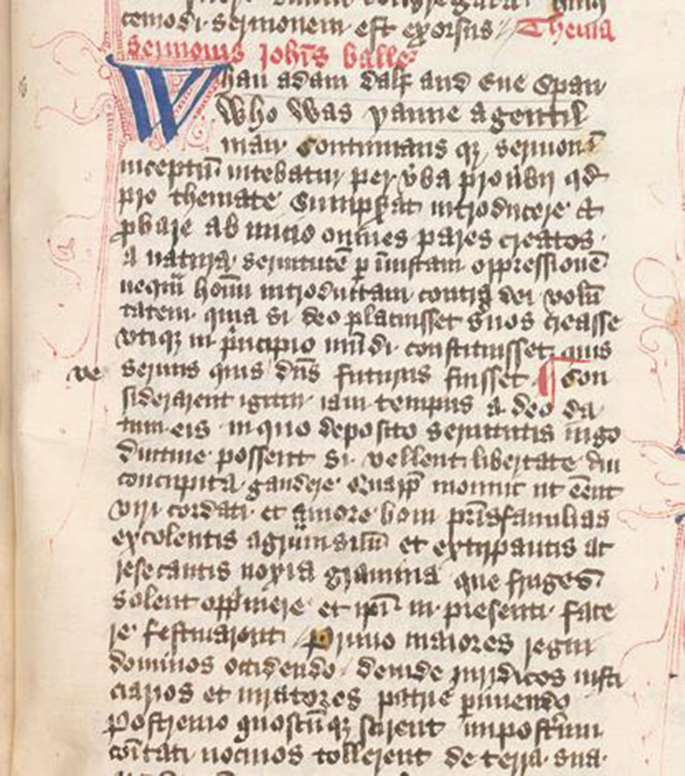 temodi sermonem est exorsus Thema
sermonis Johis balle
Whan adam dalf and Eue Span
Who Was panne a gentil
man Continuans qz sermonē
inceptū nitebatur per v̄ba prouerbij qd
pro themate Sumpserat introducere et
ꝓbare ab inicio omnes pares creatos
a natura seruitutē ꝑ iniustam oppressionē
nequā hoīm introductam contra dei volū
tatem quia si deo placuisset seruos creasse
vtiqz in principio mūdi constituisset quis
ve seruus quis dn̄s futurus fuisset ¶ Con
siderarent igitur iam tempus a deo da
tum eis in quo deposito seruitutis iugo
diutine possent si vellent libertate diu
concupita gaudere Quapp̄ monuit ut eēnt
viri cordati et amore boni pr̄isfamilias
excolentis agrum suū et extirpantis ac
resecantis noxia gramina que fruges
solent opp̄mere et ip̄i in presenti face
re festinarent Primo maiores regni
dominos occidendo deinde iuridicos iusti
ciarios et iuratores patrie ꝑimendo
Postremo quoscūqz scirent impost̄um
cōitati nociuos tollerent de terra sua